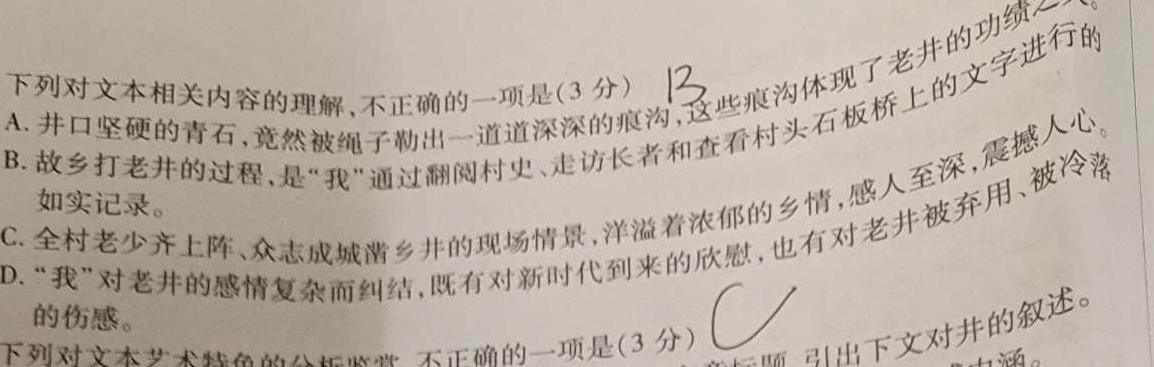 下列对文本相关内容的理解,不正确的一项是(3分) B
A. 井口坚硬的青石,竟然被绳子勒出一道道深深的痕沟,这些痕沟体现了老井的功绩之大。
B. 故乡打老井的过程,是“我”通过翻阅村史、走访长者和查看村头石板桥上的文字进行的
如实记录。
C. 全村老少齐上阵、众志成城凿乡井的现场情景,洋溢着浓郁的乡情,感人至深,震撼人心。
D. “我”对老井的感情复杂而纠结,既有对新时代到来的欣慰,也有对老井被弃用、被冷落
的伤感。
下列对文本艺术特色的分析鉴赏,不正确的一项是(3分) C
标题,引出下文对井的叙述。
内涵。